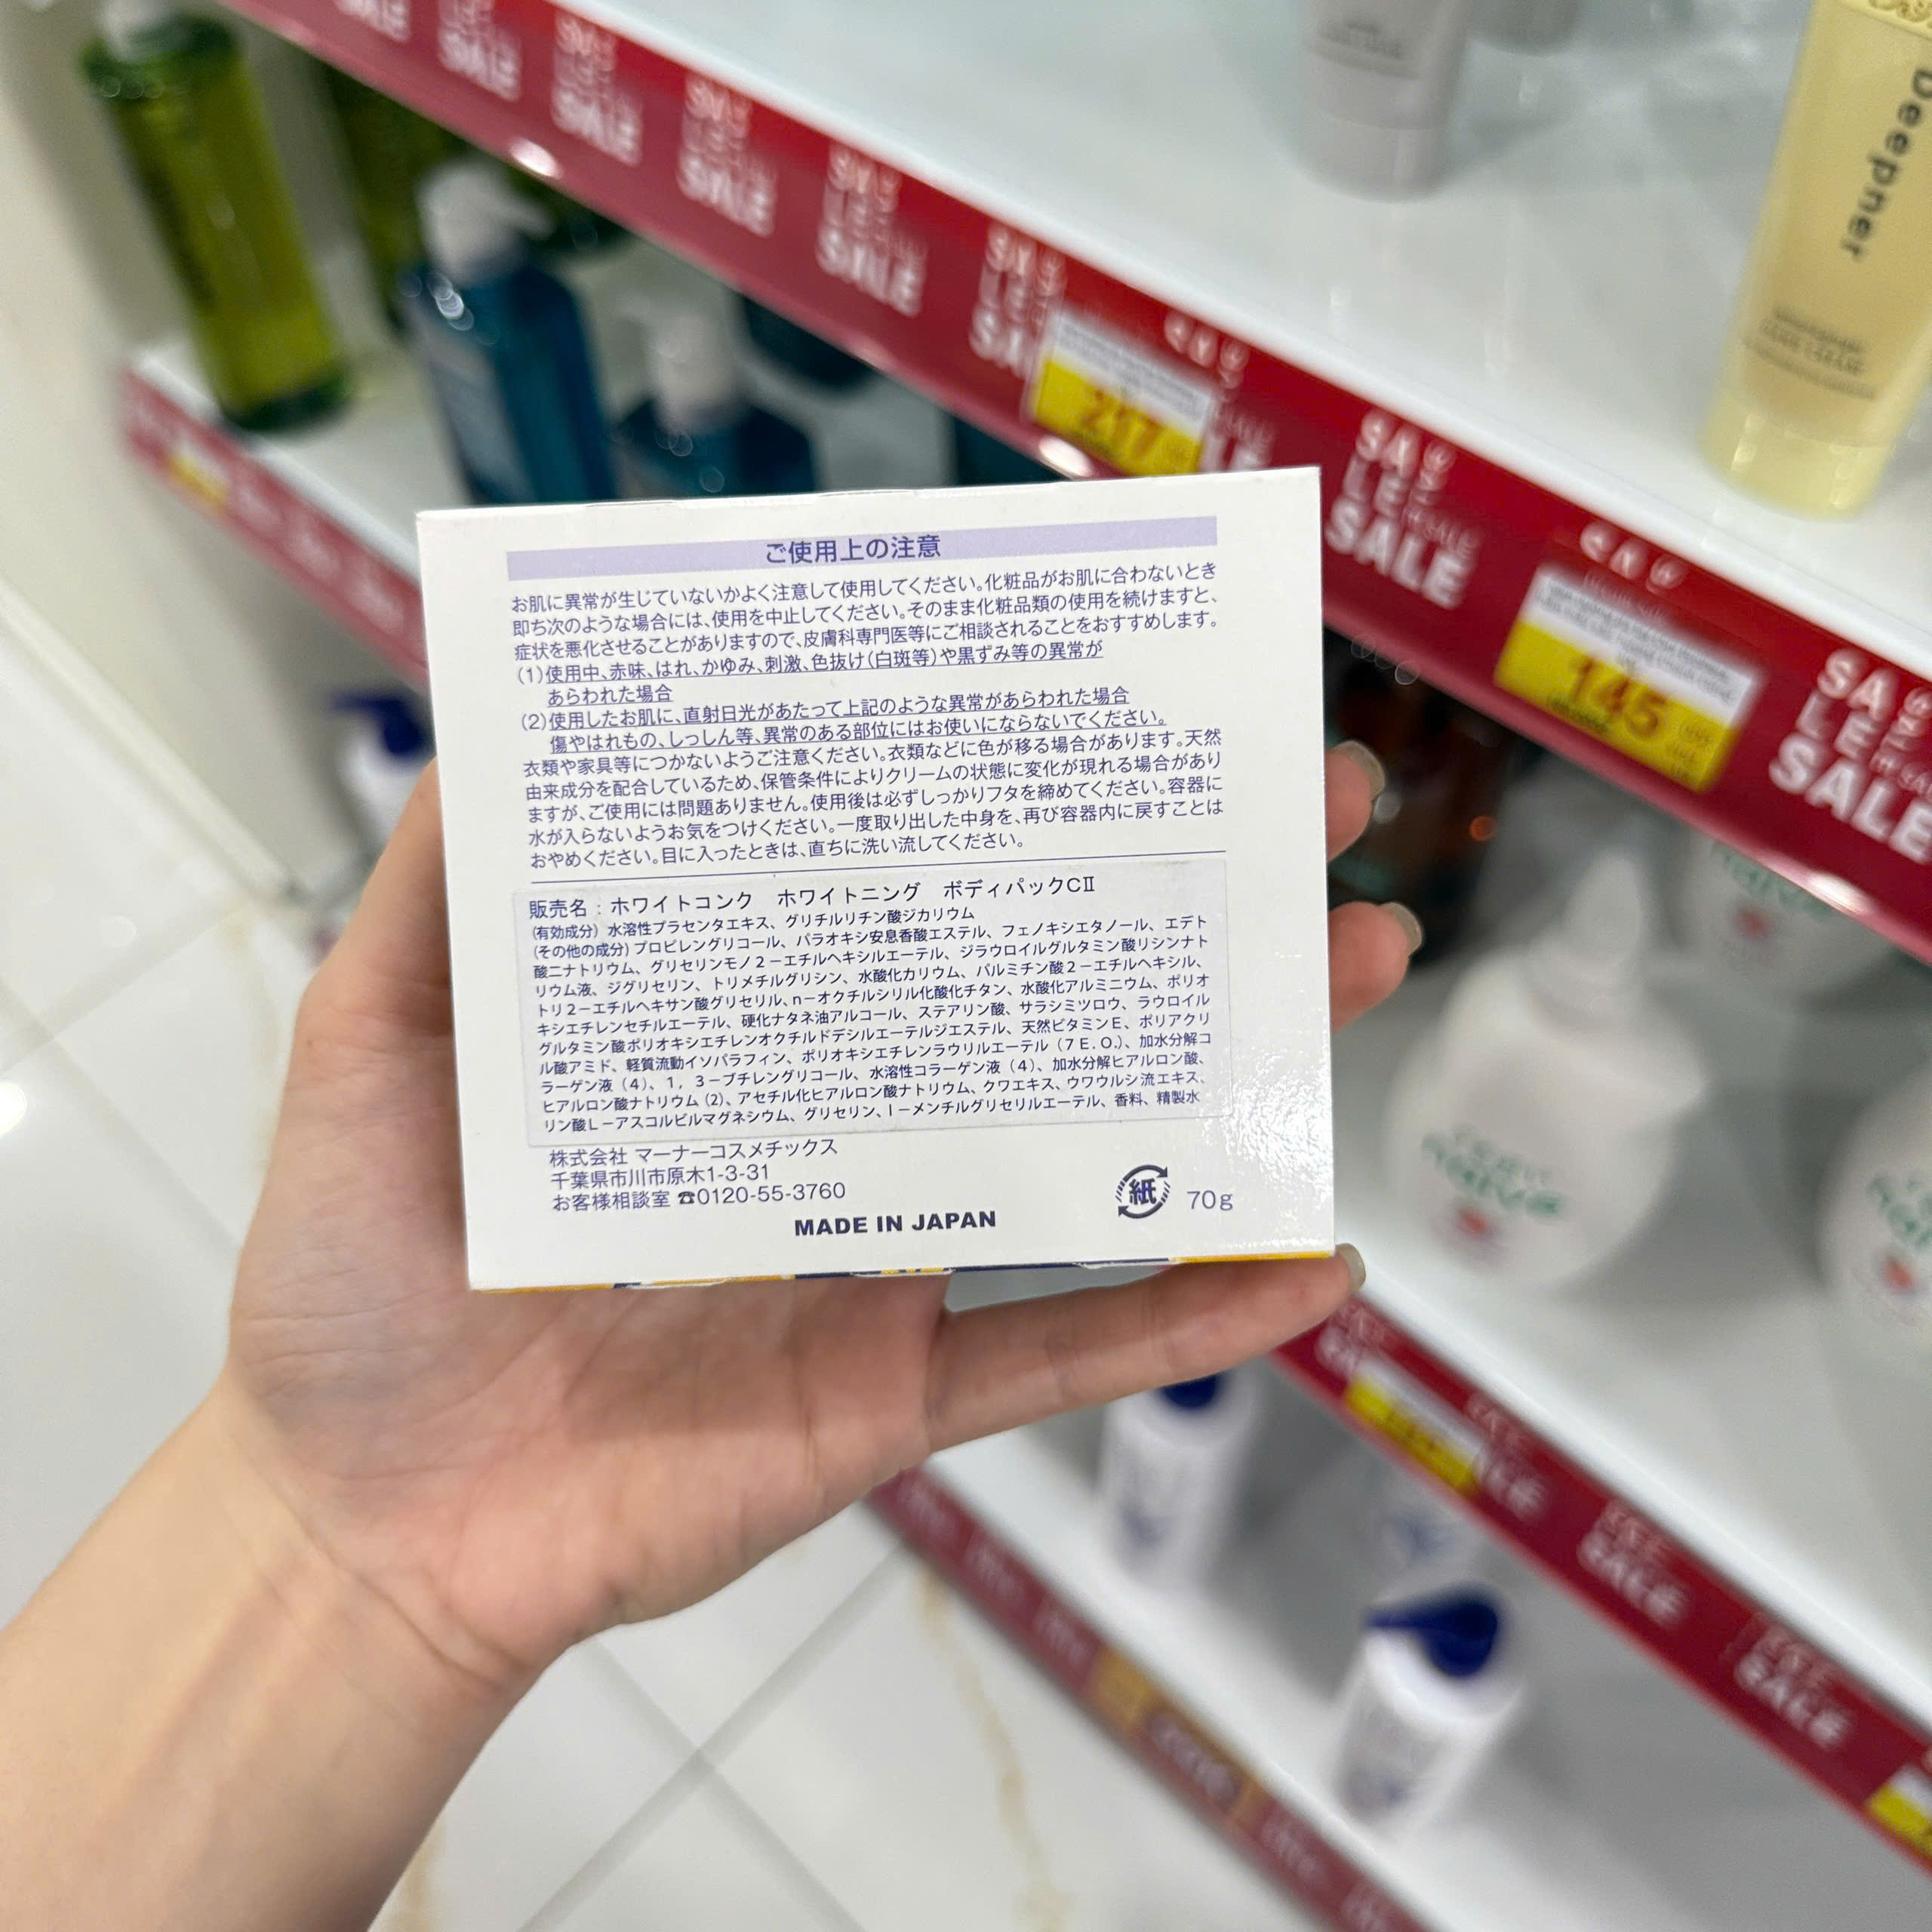 Deepner
HAND CREAM
SALE
SALE
SALE
SALE
SALE
SALE
217
SALE
145
SALE
ご使用上の注意
お肌に異常が生じていないかよく注意して使用してください。化粧品がお肌に合わないとき
即ち次のような場合には、使用を中止してください。そのまま化粧品類の使用を続けますと、
症状を悪化させることがありますので、皮膚科専門医等にご相談されることをおすすめします。
(1)使用中、赤味、はれ、かゆみ、刺激、色抜け(白斑等)や黒ずみ等の異常が
あらわれた場合
(2)使用したお肌に、直射日光があたって上記のような異常があらわれた場合
傷やはれもの、しっしん等、異常のある部位にはお使いにならないでください。
衣類や家具等につかないようご注意ください。衣類などに色が移る場合があります。天然
由来成分を配合しているため、保管条件によりクリームの状態に変化が現れる場合があり
ますが、ご使用には問題ありません。使用後は必ずしっかりフタを締めてください。容器に
水が入らないようお気をつけください。一度取り出した中身を、再び容器内に戻すことは
おやめください。目に入ったときは、直ちに洗い流してください。
販売名：ホワイトコンク ホワイトニング ボディパックCⅡ
(有効成分) 水溶性プラセンタエキス、グリチルリチン酸ジカリウム
(その他の成分) プロピレングリコール、パラオキシ安息香酸エステル、フェノキシエタノール、エデト
酸二ナトリウム、グリセリンモノ２－エチルヘキシルエーテル、ジラウロイルグルタミン酸リシンナト
リウム液、ジグリセリン、トリメチルグリシン、水酸化カリウム、パルミチン酸２－エチルヘキシル、
トリ２－エチルヘキサン酸グリセリル、n－オクチルシリル化酸化チタン、水酸化アルミニウム、ポリオ
キシエチレンセチルエーテル、硬化ナタネ油アルコール、ステアリン酸、サラシミツロウ、ラウロイル
グルタミン酸ポリオキシエチレンオクチルドデシルエーテルジエステル、天然ビタミンＥ、ポリアクリ
ル酸アミド、軽質流動イソパラフィン、ポリオキシエチレンラウリルエーテル（７Ｅ.Ｏ.）、加水分解コ
ラーゲン液（4）、１，３－ブチレングリコール、水溶性コラーゲン液（4）、加水分解ヒアルロン酸、
ヒアルロン酸ナトリウム（2）、アセチル化ヒアルロン酸ナトリウム、クワエキス、ウワウルシ流エキス、
リン酸Ｌ－アスコルビルマグネシウム、グリセリン、ｌ－メンチルグリセリルエーテル、香料、精製水
株式会社 マーナーコスメチックス
千葉県市川市原木1-3-31
お客様相談室 ☎0120-55-3760
MADE IN JAPAN
紙
70g
naive